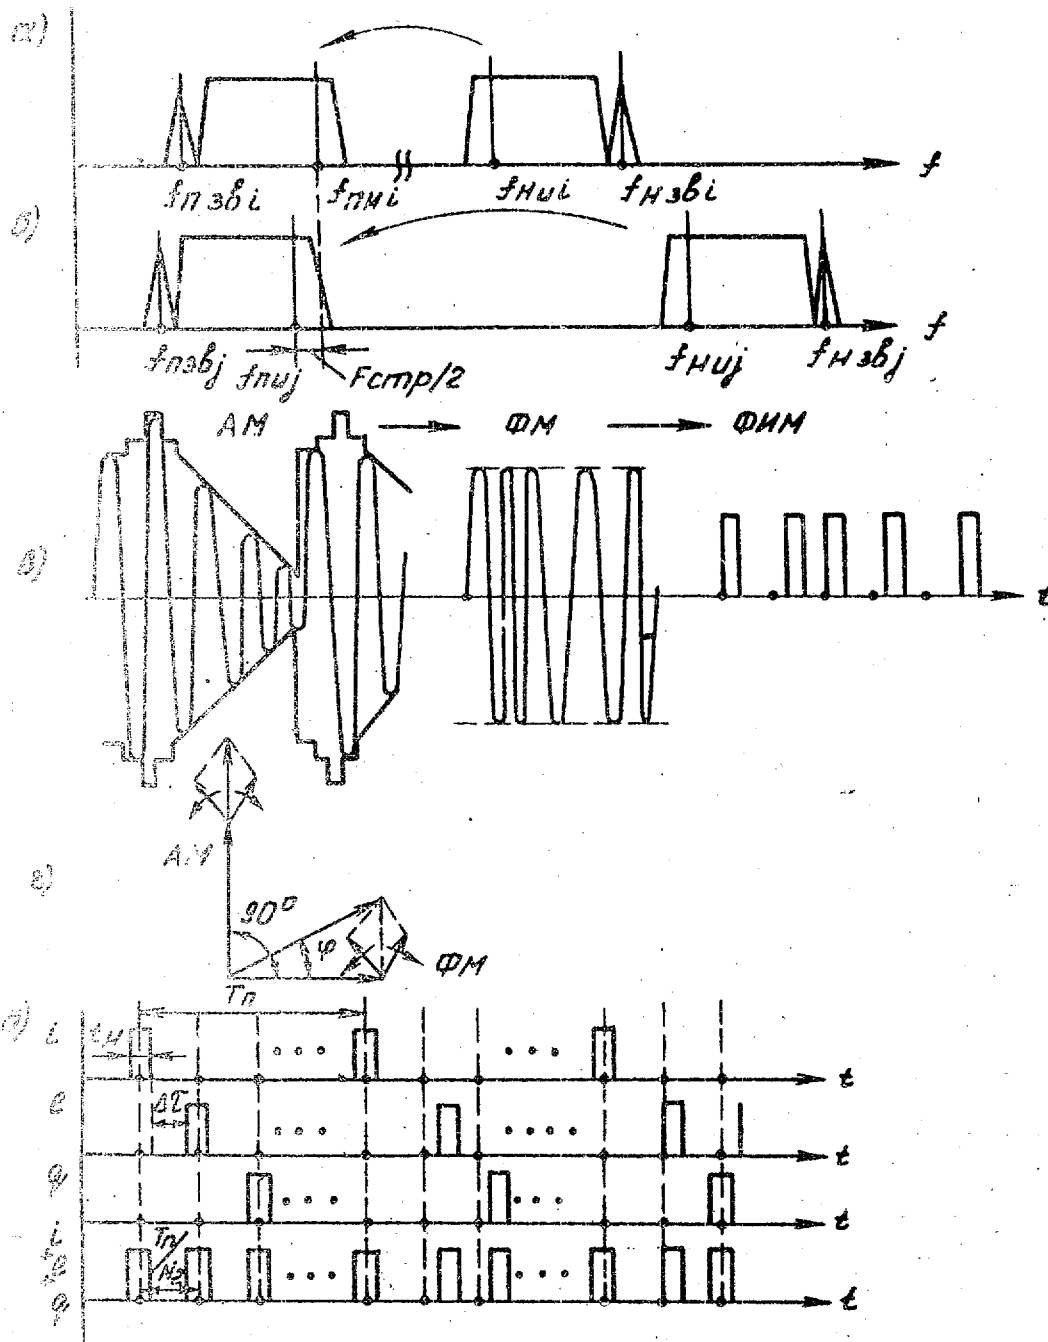 а)
fп звi
fпиi
fниi
fн звi
f
б)
fпзвj
fпиj
Fстр/2
fниj
fн звj
f
АМ
ФМ
ФИМ
в)
t
АМ
г)
90°
φ
ФМ
Tп
д)
i
tи
t
e
Δτ
t
q
t
i
+e
+q
Tп/N₂
t